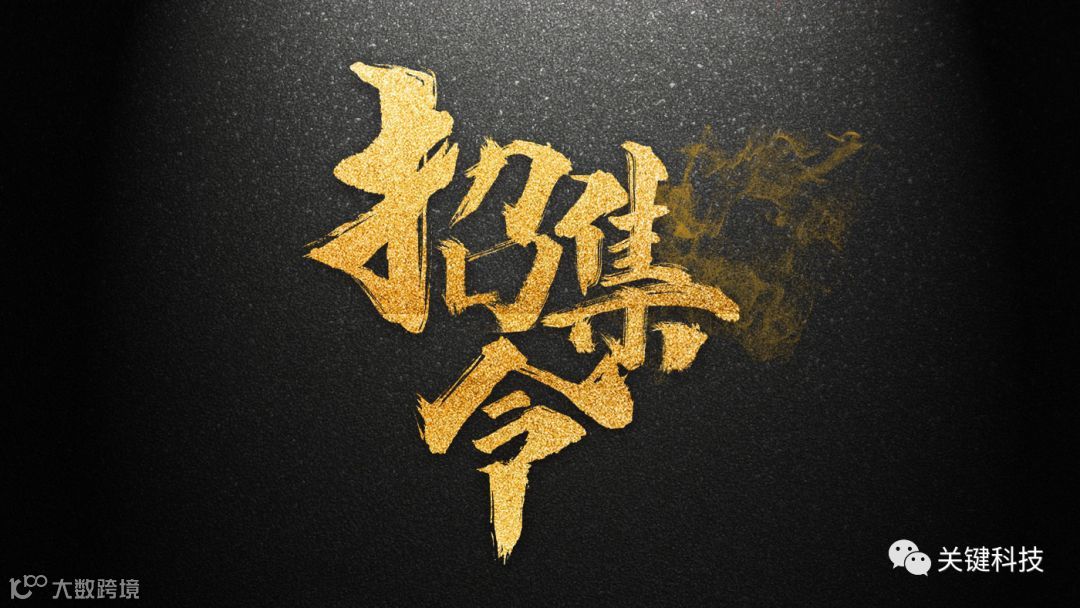 招集
令
关键科技
10100 大数跨境